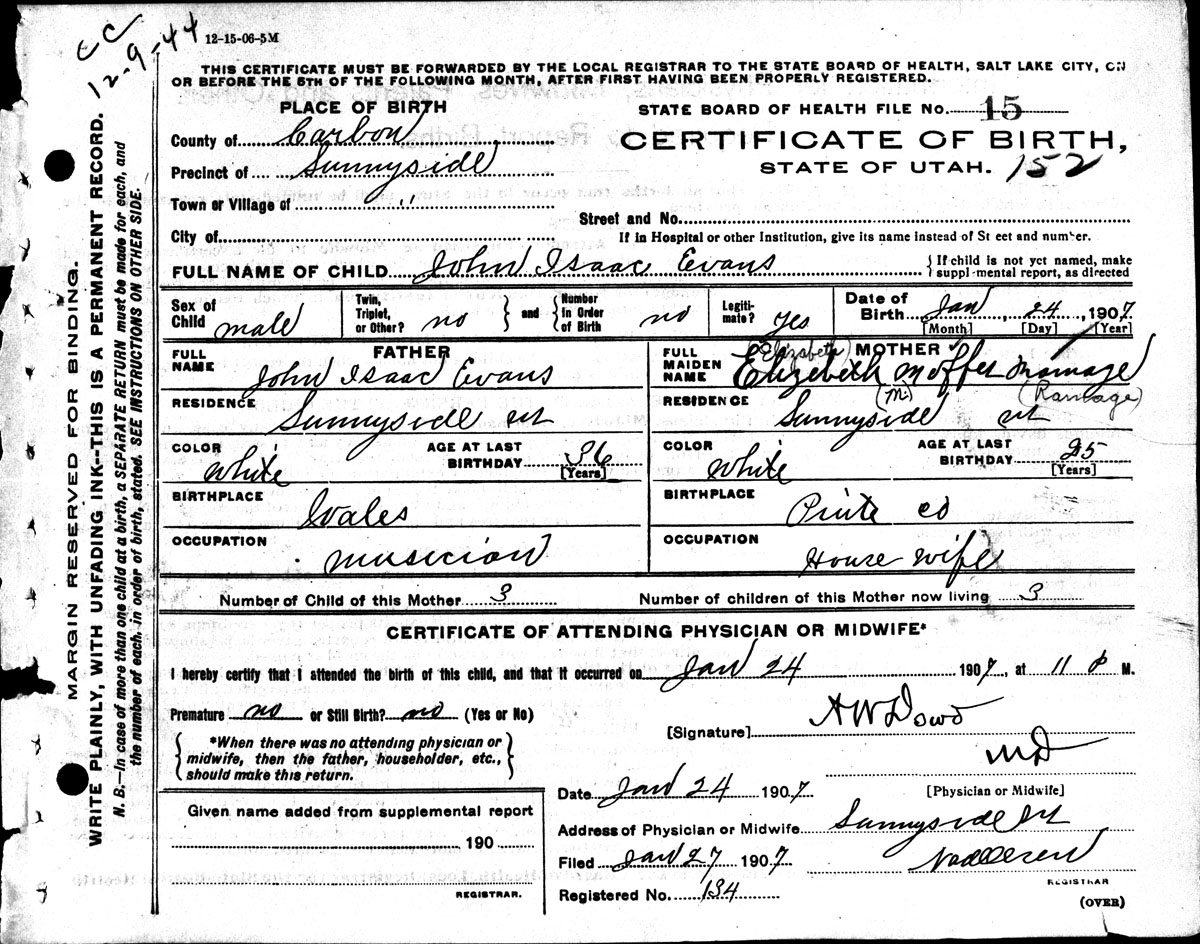 CC
12-9-44
12-15-06-5M
THIS CERTIFICATE MUST BE FORWARDED BY THE LOCAL REGISTRAR TO THE STATE BOARD OF HEALTH, SALT LAKE CITY, ON
OR BEFORE THE 5TH OF THE FOLLOWING MONTH, AFTER FIRST HAVING BEEN PROPERLY REGISTERED.
PLACE OF BIRTH
County of Carbon
Precinct of Sunnyside
Town or Village of "
City of
STATE BOARD OF HEALTH FILE No. 15
CERTIFICATE OF BIRTH,
STATE OF UTAH. 152
Street and No.
If in Hospital or other Institution, give its name instead of St eet and number.
FULL NAME OF CHILD John Isaac Evans
If child is not yet named, make
suppl-mental report, as directed
Sex of Child male
Twin, Triplet, or Other? no
and Number in Order of Birth no
Legiti-mate? yes
Date of Birth Jan 24 1907
[Month] [Day] [Year]
FATHER
FULL NAME John Isaac Evans
RESIDENCE Sunnyside ut
COLOR White AGE AT LAST BIRTHDAY 36
[Years]
BIRTHPLACE Wales
OCCUPATION musician
MOTHER
(Elizabeth)
FULL MAIDEN NAME Elizebeth Moffet
(M.) (Ramage)
RESIDENCE Sunnyside ut
COLOR White AGE AT LAST BIRTHDAY 25
[Years]
BIRTHPLACE Piute co
OCCUPATION House wife
Number of Child of this Mother 3 Number of children of this Mother now living 3
CERTIFICATE OF ATTENDING PHYSICIAN OR MIDWIFE*
I hereby certify that I attended the birth of this child, and that it occurred on Jan 24 1907, at 11 P M.
Premature no or Still Birth? no (Yes or No)
*When there was no attending physician or
midwife, then the father, householder, etc.,
should make this return.
[Signature] A W Dowd
MD
[Physician or Midwife]
Date Jan 24 1907
Address of Physician or Midwife Sunnyside Ut
Filed Jan 27 1907
REGISTRAR
Registered No. 134
(OVER)
Given name added from supplemental report
190
REGISTRAR.
MARGIN RESERVED FOR BINDING.
WRITE PLAINLY, WITH UNFADING INK--THIS IS A PERMANENT RECORD.
N. B.—In case of more than one child at a birth, a SEPARATE RETURN must be made for each, and
the number of each, in order of birth, stated. SEE INSTRUCTIONS ON OTHER SIDE.